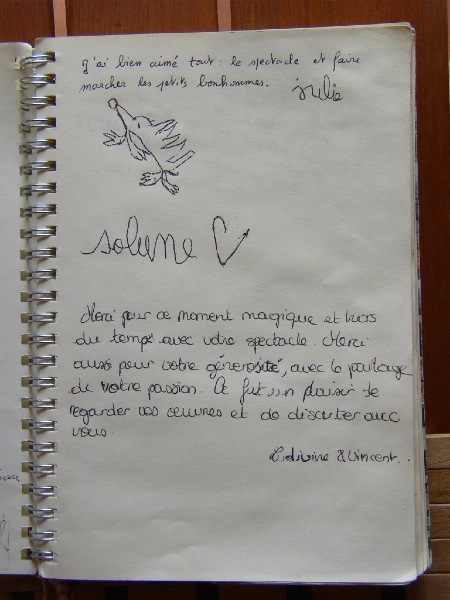 J'ai bien aimé tout : le spectacle et faire
marcher les petits bonhommes.
julie
solune
Merci pour ce moment magique et hors
du temps avec votre spectacle. Merci
aussi pour votre générosité, avec le partage
de votre passion. Ce fut un plaisir de
regarder vos œuvres et de discuter avec
vous.
Ludivine & Vincent.